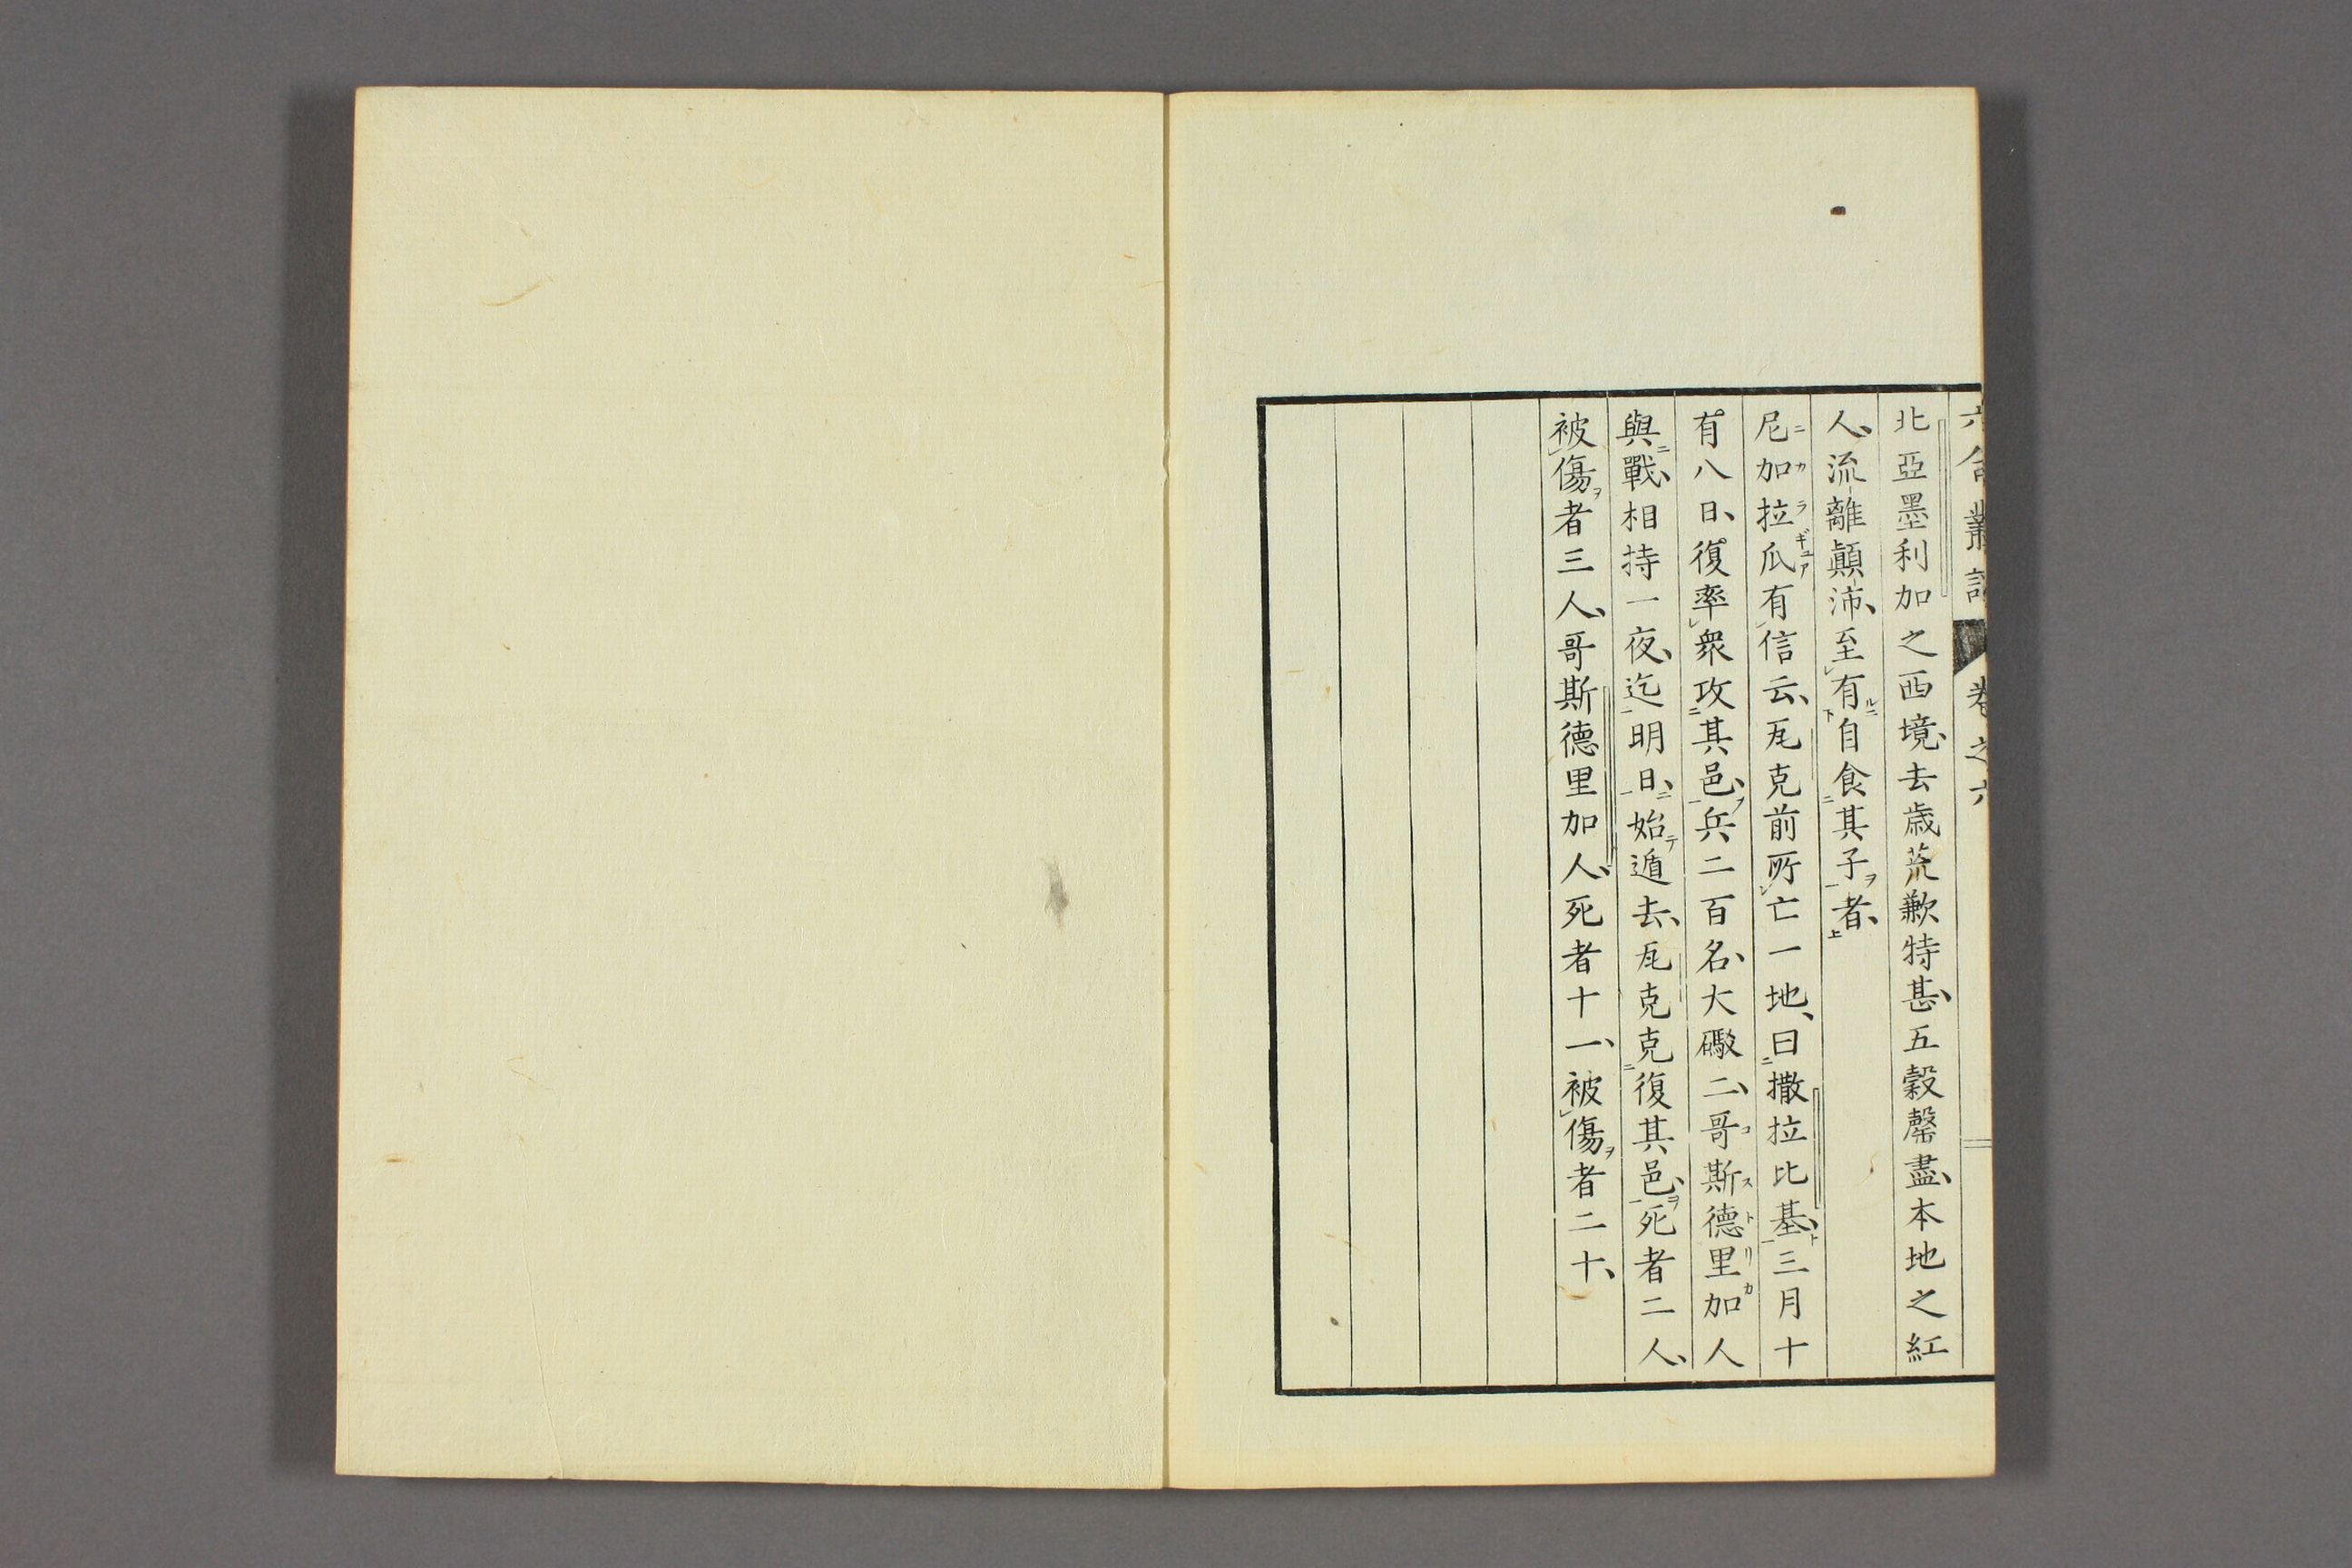 六合叢談 卷之六
北亞墨利加之西境、去歲荒歉特甚、五穀罄盡、本地之紅
人、流離顛沛、至有自食其子者、
尼加拉瓜有信云、厇克前所亡一地、曰撒拉比基、三月十
有八日、復率衆攻其邑、兵二百名、大礮二、哥斯德里加人
與戰、相持一夜、迄明日、始遁去、厇克克復其邑、死者二人、
被傷者三人、哥斯德里加人、死者十一、被傷者二十、